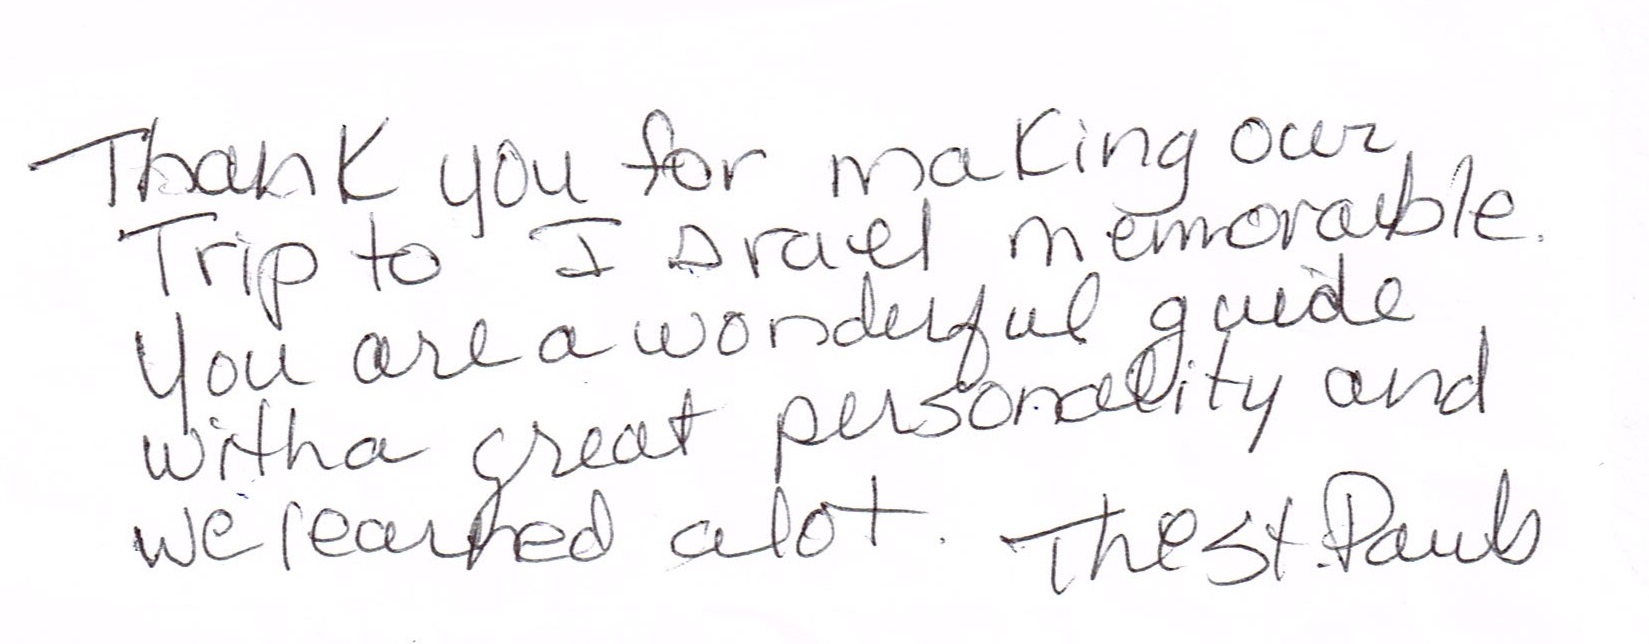 Thank you for making our
Trip to Israel memorable.
You are a wonderful guide
with a great personality and
we learned alot. The St. Pauls